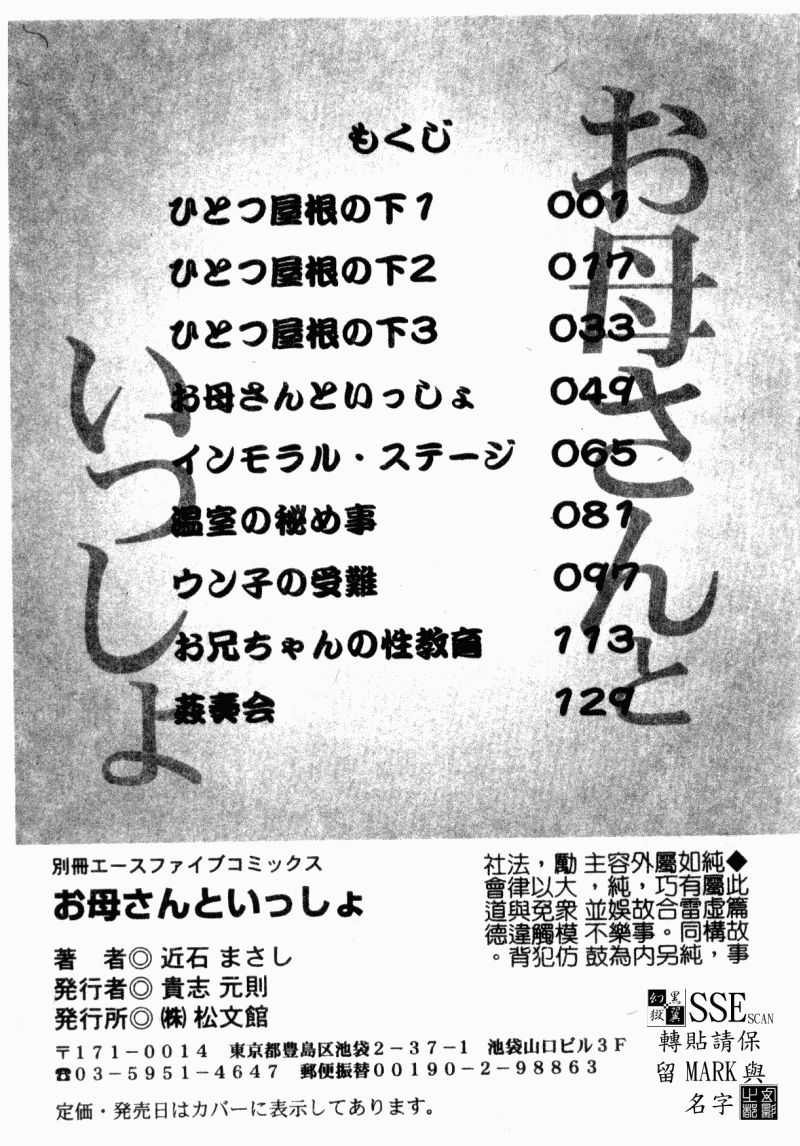 お母さんと
いっしょ
もくじ
ひとつ屋根の下1 001
ひとつ屋根の下2 017
ひとつ屋根の下3 033
お母さんといっしょ 049
インモラル・ステージ 065
温室の秘め事 081
ウン子の受難 097
お兄ちゃんの性教育 113
姦奏会 129
別冊エースファイブコミックス
お母さんといっしょ
著　者◎ 近石 まさし
発行者◎ 貴志 元則
発行所◎ ㈱ 松文館
〒171-0014　東京都豊島区池袋2-37-1　池袋山口ビル3F
☎03-5951-4647　郵便振替00190-2-98863
定価・発売日はカバーに表示してあります。
◆此篇故事
純屬虛構，
如有雷同純
屬巧合。另
外，故事內
容純娛樂為
主，並不鼓
勵大眾模仿
，以免觸犯
法律與違背
社會道德。
幻獄 黑翼
SSE SCAN
轉貼請保
留 MARK 與
名字